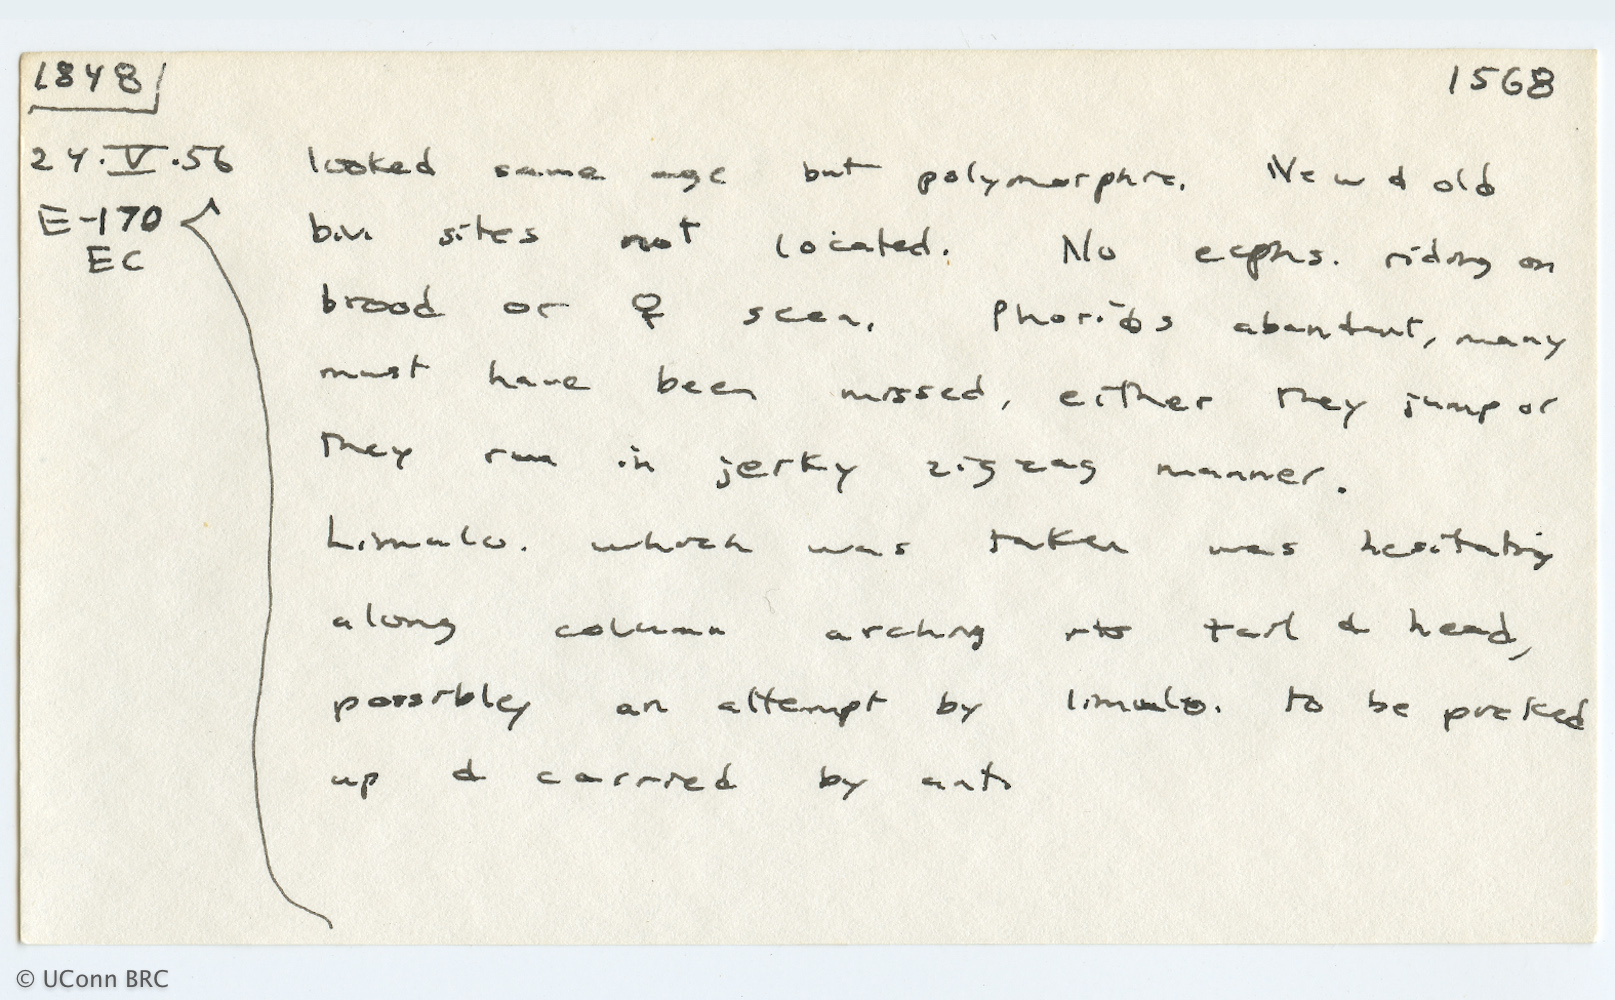 1848
1568
24.V.56 looked same age but polymorphic. New & old
E-170 bivi sites not located. No ecphs. riding on
EC
brood or ♀ seen. Phorids abundant, many
must have been missed, either they jump or
they run in jerky zigzag manner.
Limulo. which was taken was hesitating
along column arching its tail & head,
possibley an attempt by limulo. to be picked
up & carried by ants
© UConn BRC